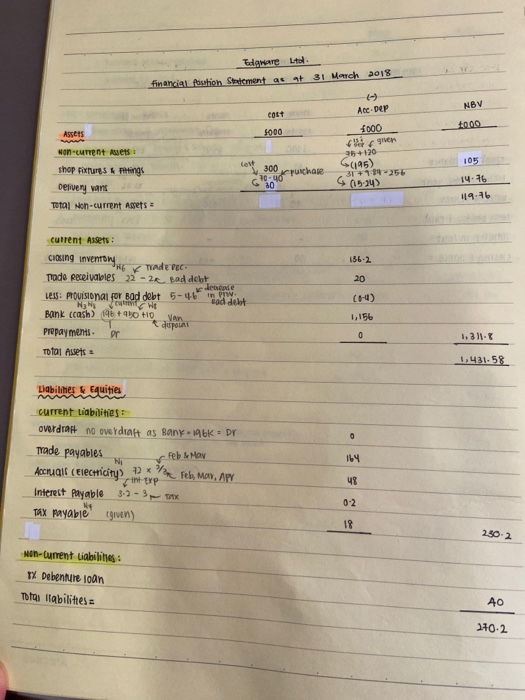 Edgware Ltd.
Financial Position Statement as at 31 March 2018
(-)
cost Acc. Dep NBV
Assets £000 £000 £000
Non-current Assets:
given
75+120
Shop Fixtures & Fittings cost 300 purchase (195) 105
70-40 31+9.84-25.6
Delivery vans 30 (15.24) 14.76
Total Non-current Assets = 119.76
Current Assets:
Closing inventory 136.2
N6 Trade rec.
Trade Receivables 22 - 2 Bad debt 20
decrease
Less: Provisional for Bad debt 5-4.6 in prov. Bad debt (0.4)
Bank (cash) 196+950+10 Van disposal 1,156
Prepayments. Dr 0 1,311.8
Total Assets = 1,431.58
Liabilities & Equities
Current Liabilities:
Overdraft no overdraft as Bank = 196k = Dr 0
Trade payables 164
N1 Feb & Mar
Accruals (Electricity) 72 x 2/3 Feb, Mar, Apr 48
int exp
Interest Payable 3.2 - 3 0.2
N4
Tax Payable (given) 18
230.2
Non-Current Liabilities:
8% Debenture loan 40
Total liabilities = 270.2